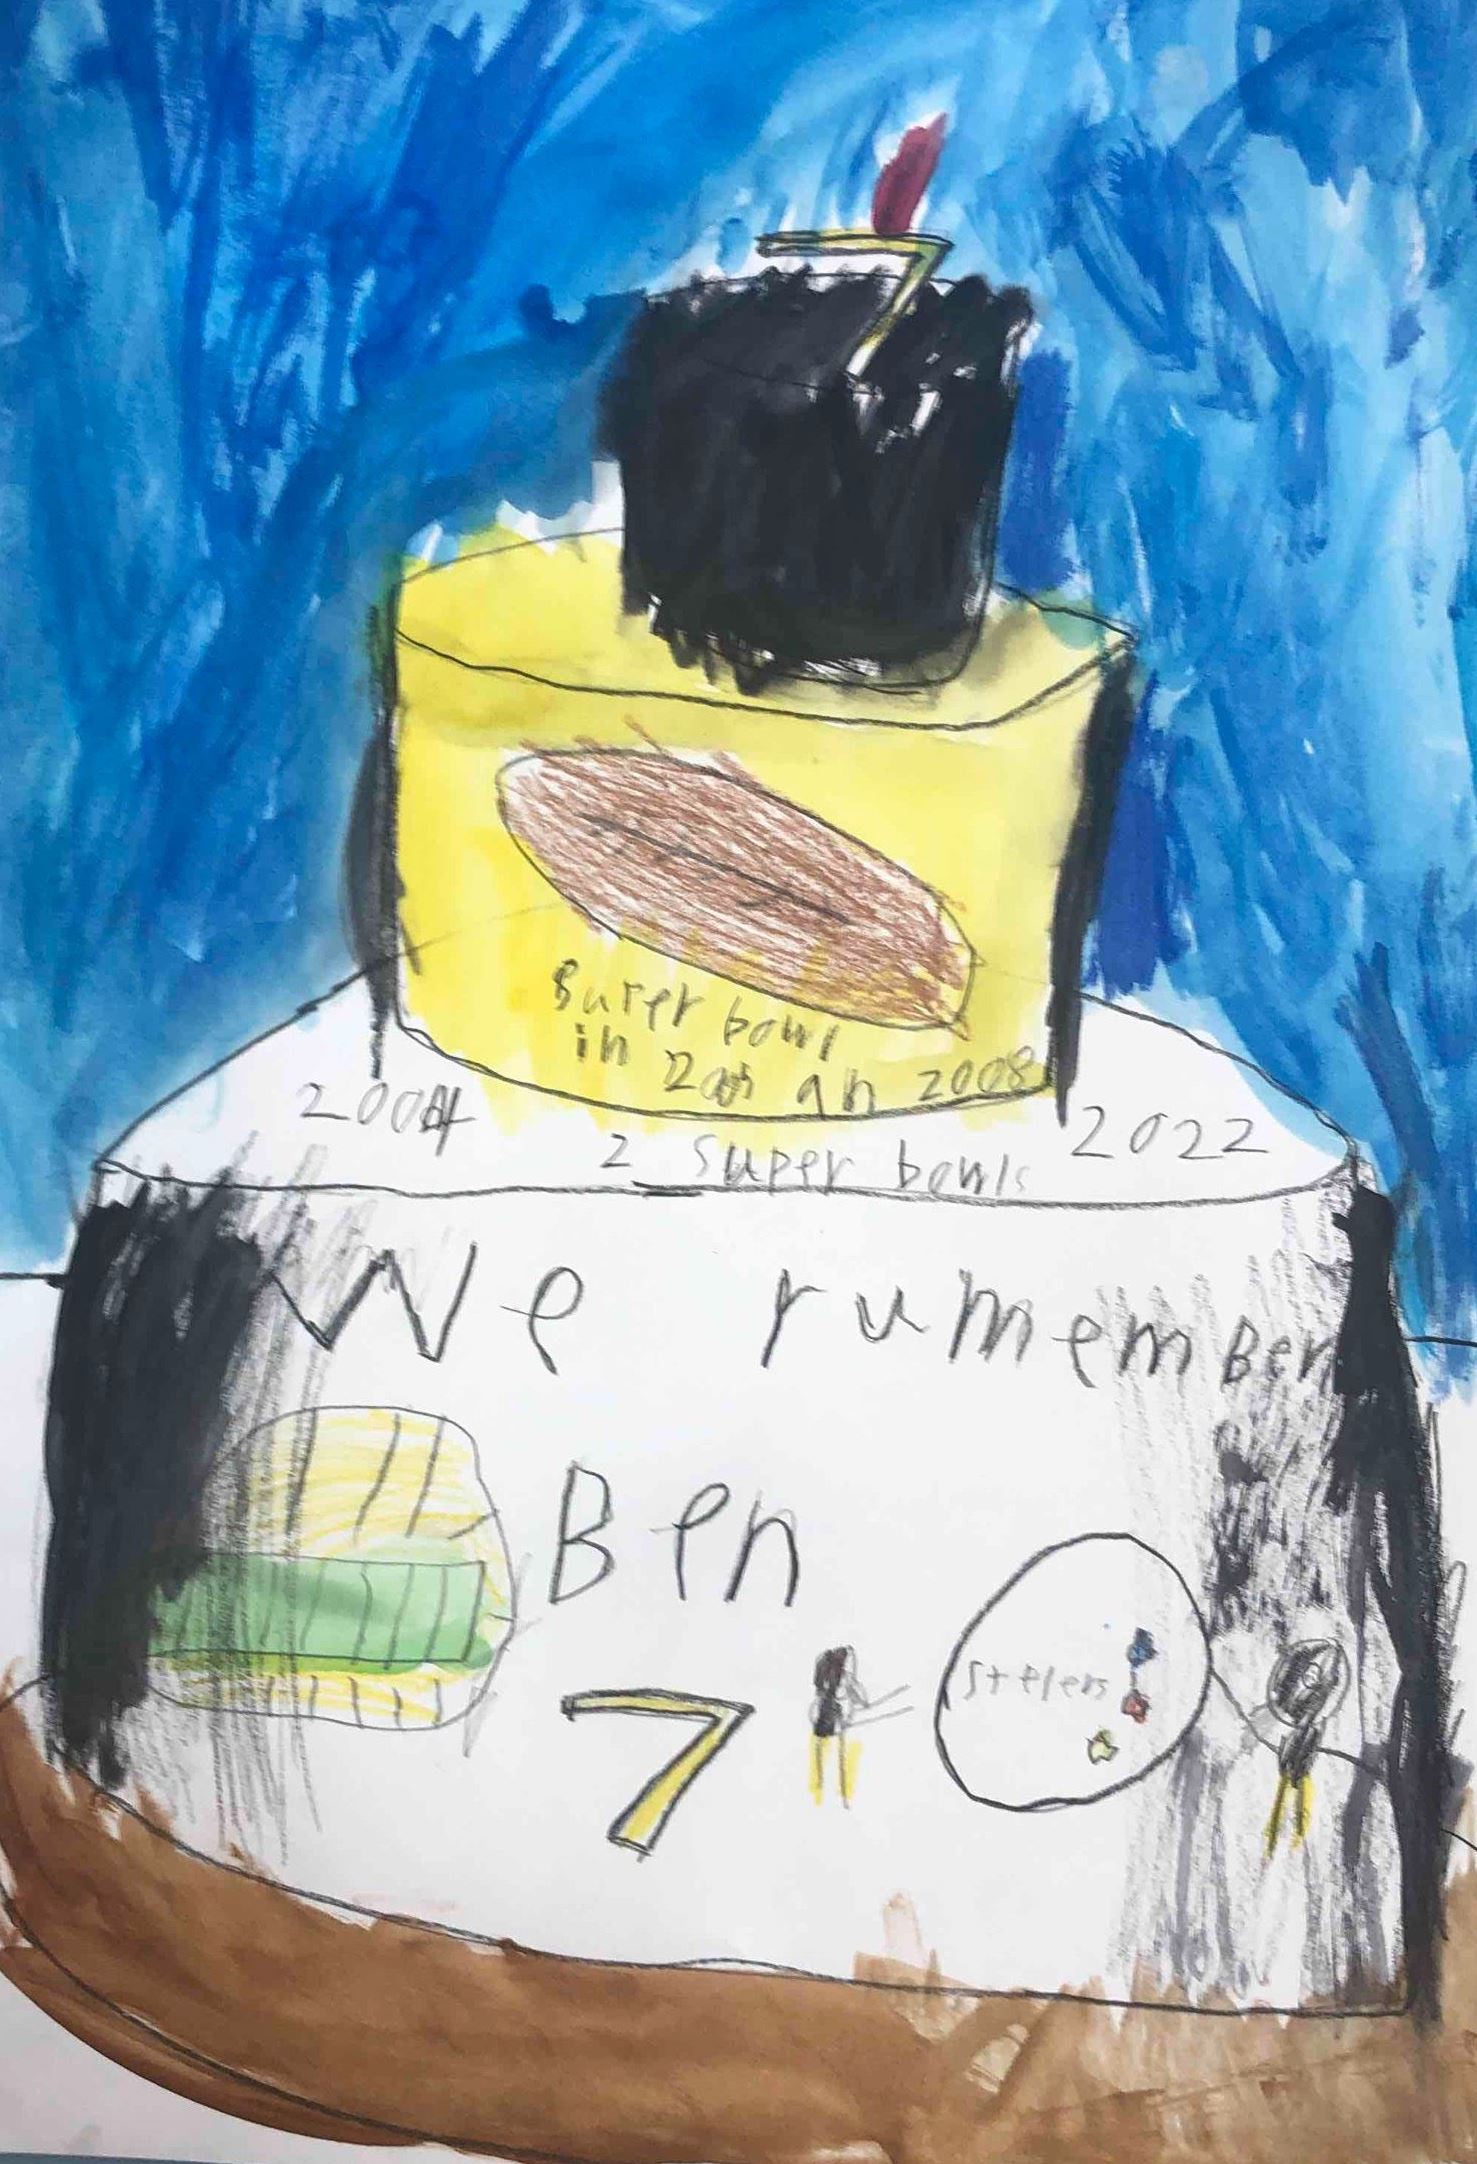 7
bowl
in an 2008
2004 2 super bowls 2022
We rumemBer
Ben
7
stelers